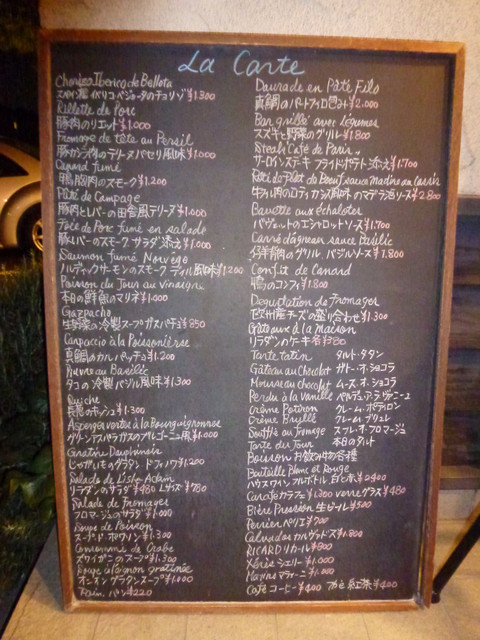 La Carte
Chorizo Iberico de Bellota
スペイン産 イベリコベジョータのチョリソ ¥1.300
Rillette de Porc
豚肉のリエット ¥1.000
Fromage de tête au Persil
豚のテリーヌ パセリ風味 ¥1.000
Canard fumé
鴨胸肉のスモーク ¥1.200
Pâté de Campagne
豚肉とレバーの田舎風テリーヌ ¥1.000
Foie de Porc fumé en salade
豚レバーのスモーク サラダ添え ¥1.000
Saumon fumé Norvège
ノルディックサーモンのスモーク ディル風味 ¥1.200
Poisson du Jour au vinaigre
本日の鮮魚のマリネ ¥1.000
Gazpacho
生野菜の冷製スープ ガスパチョ ¥850
Carpaccio à la Poissonière
真鯛のカルパッチョ ¥1.200
au Basilic
タコの冷製バジル風味 ¥1.300
Quiche
キッシュ ¥1.300
Asperge vertes à la Bourguignonne
グリーンアスパラガスのブルゴーニュ風 ¥1.000
Gratin Dauphinois
じゃがいものグラタン ドフィノワ ¥1.200
Salade de L'isle Adam
リラダンのサラダ ¥480 Lサイズ ¥780
Salade de fromages
フロマージュのサラダ ¥1.000
Soupe de Poisson
スープ・ド・ポワソン ¥1.300
Consommé de Crabe
ズワイガニのスープ ¥1.300
Soupe à l'oignon gratinée
オニオングラタンスープ ¥1.000
Pain パン ¥220
Daurade en Pâte Filo
真鯛のパートフィロ包み ¥2.000
Bar grillé avec légumes
スズキと野菜のグリル ¥1.800
Steak Café de Paris
サーロインステーキ フライドポテト添え ¥1.700
Rôti de Filet de Boeuf sauce Madère au Cassis
牛ヒレ肉のロティ カシス風味のマデラ酒ソース ¥2.800
Bavette aux échalotes
バヴェットのエシャロットソース ¥1.700
Carré d'agneau sauce Basilic
仔羊のグリル バジルソース ¥1.800
Confit de Canard
鴨のコンフィ ¥1.800
Degustation de Fromages
欧州産チーズの盛り合わせ ¥1.300
Gâteaux à la Maison
リラダンのケーキ 各 ¥380
Tarte tatin タルト・タタン
Gâteau au Chocolat ガトー・オ・ショコラ
Mousse au chocolat ムース オ ショコラ
Perdu à la Vanille ペルデュ・ア・ラ・ヴァニーユ
Crème Potiron クレーム・ポティロン
Crème Brullé クレーム・ブリュレ
Soufflé au fromage スフレ・オ・フロマージュ
Tarte du Jour 本日のタルト
Boisson お飲み物各種
Bouteille Blanc et Rouge
ハウスワイン フルボトル 白と赤 ¥2400
Carafe カラフェ ¥1.300 verre グラス ¥480
Bière Pression 生ビール ¥500
Perrier ペリエ ¥700
Calvados カルヴァドス ¥1.800
RICARD リカール ¥800
Xérès シェリー ¥1.000
¥1.000
Café コーヒー ¥400 紅茶 ¥400